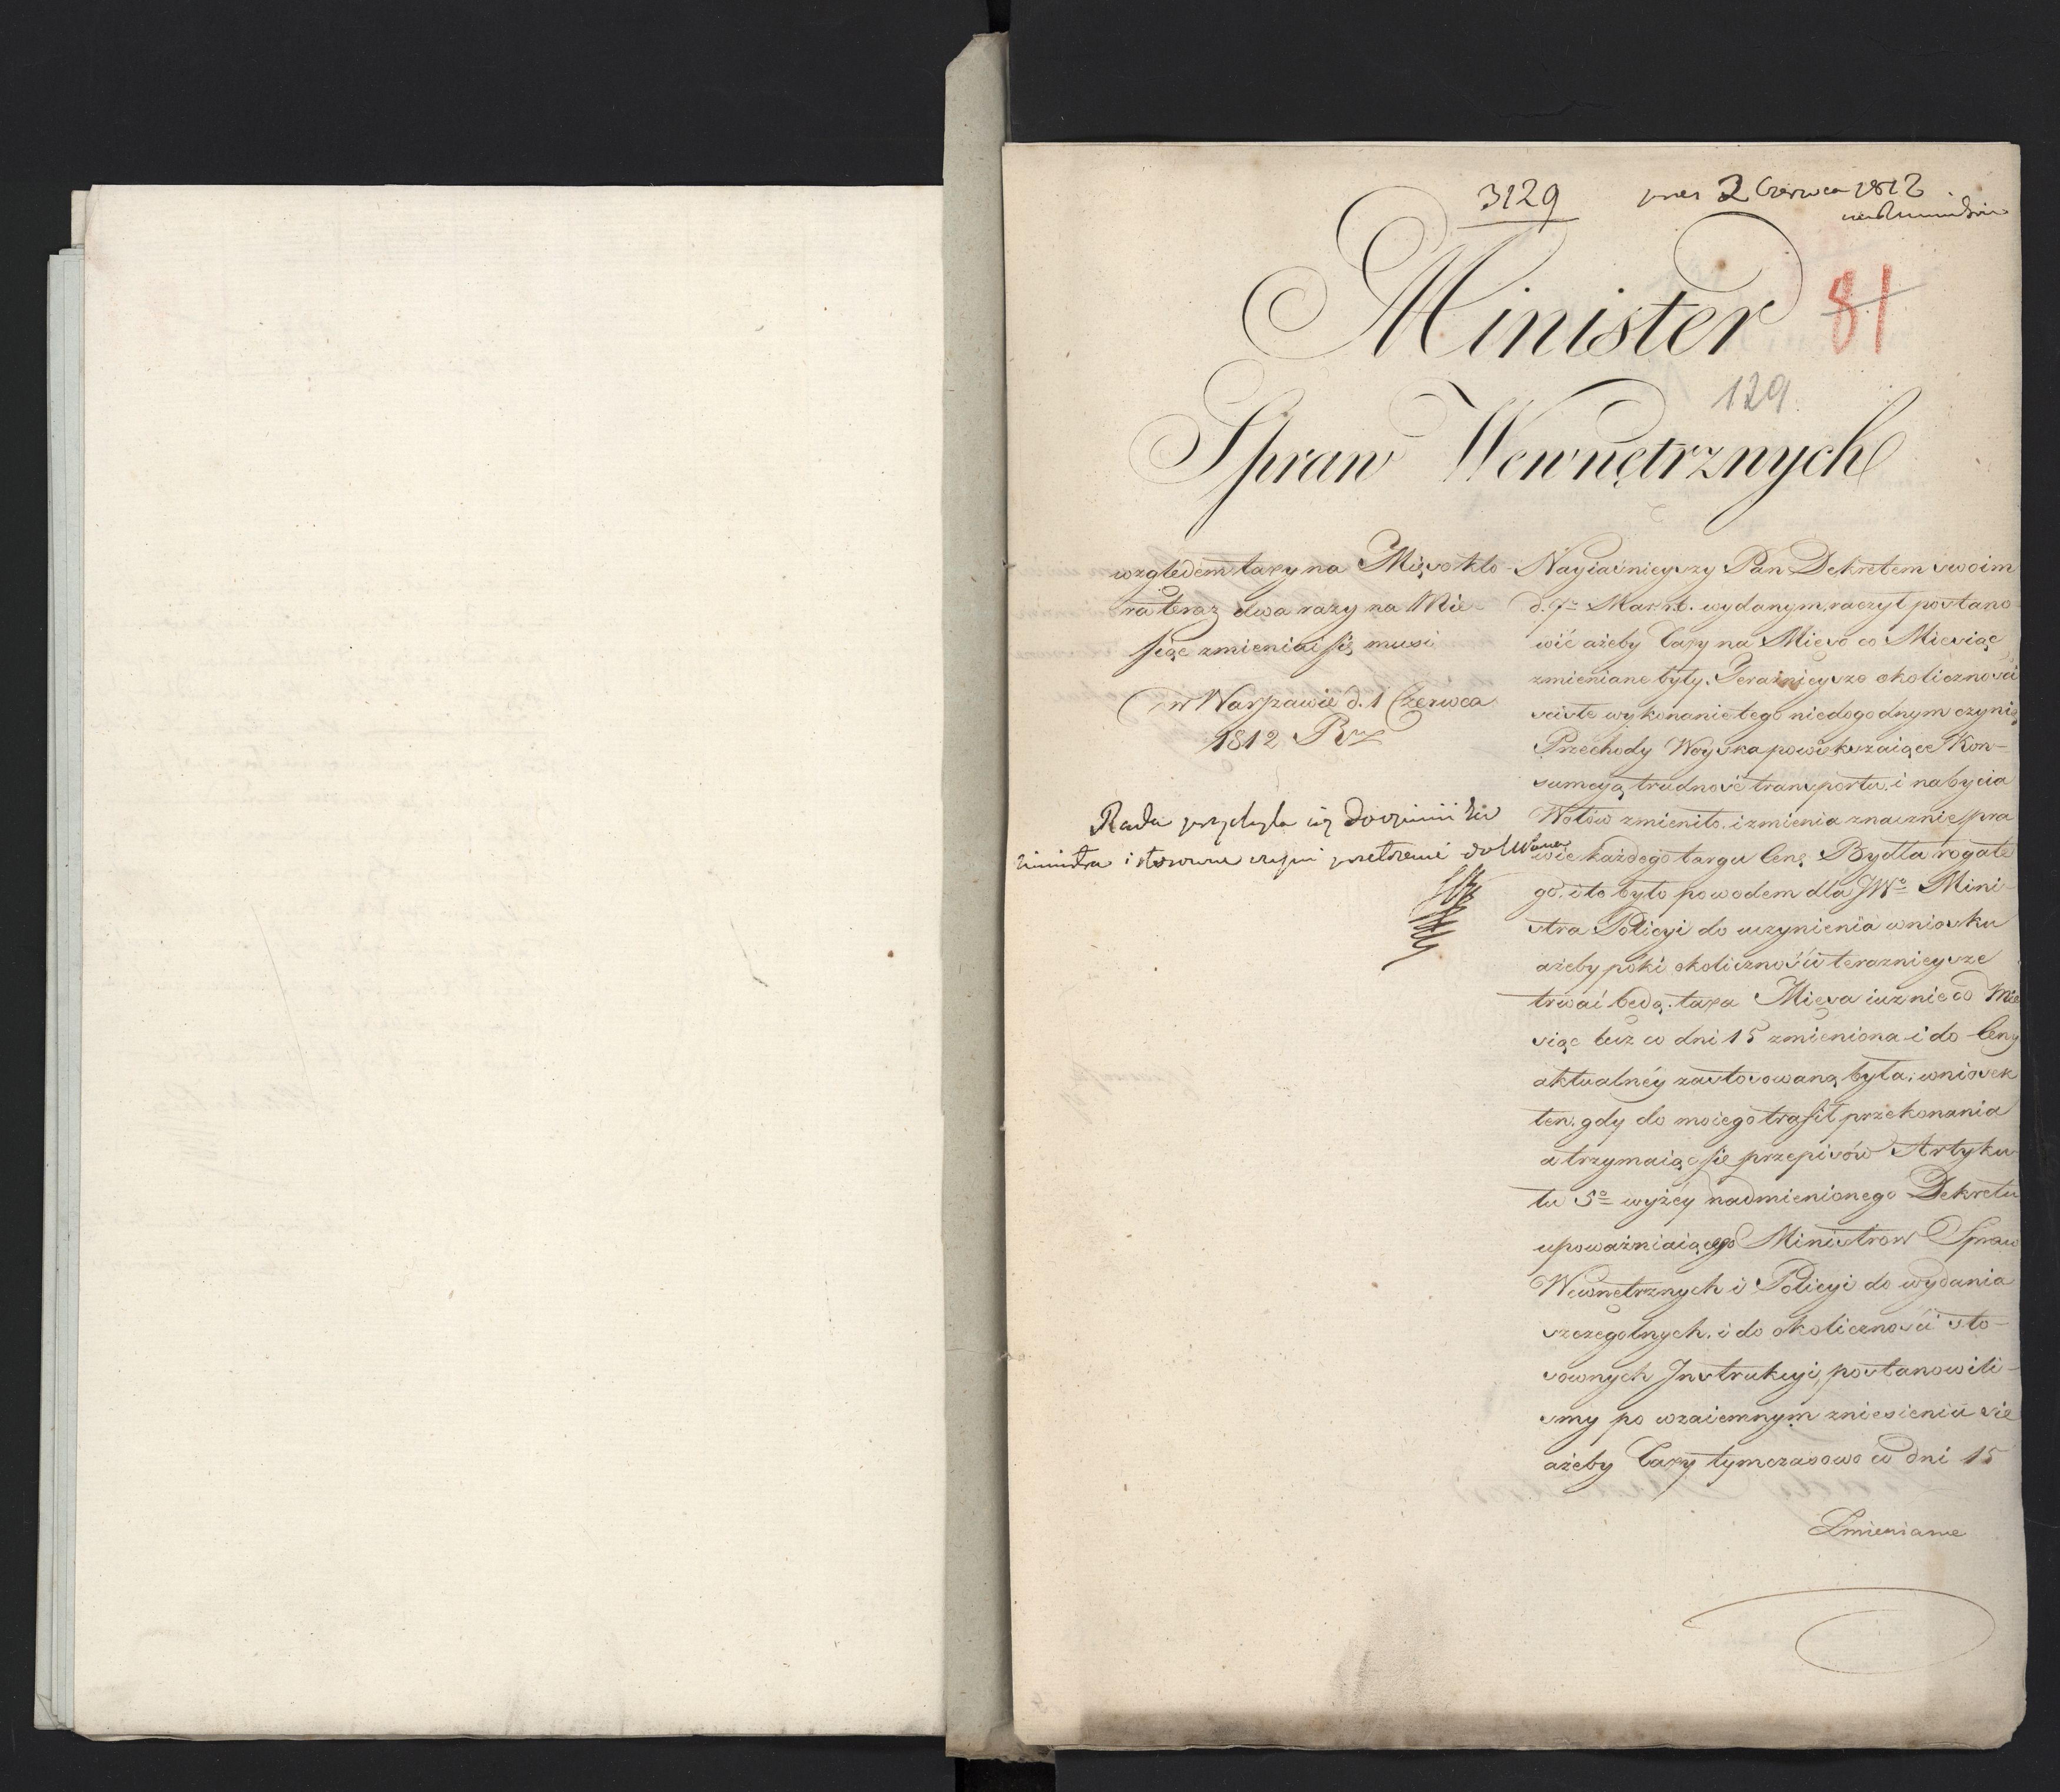 3129
pres 2 Czerwca 1812
Minister
81
129.
Spraw Wewnętrznych
względem taxy na Mięso któ-
ra teraz dwa razy na Mie-
siąc zmieniaí się musi
w Warszawie d. 1 Czerwca
1812 R
Rada przychyla się do opinii
ministra i stosowne
Nayiaśnieyszy Pan Dekretem swoim
d. 7º Mar. r.b. wydanym, raczył postano-
wić ażeby Taxy na Mięso co Miesiąc
zmieniane były. Teraźnieysze okoliczności
ściste wykonanie tego niedogodnym czynią
Przechody Woyska powiększaiące Kon-
sumcyą, trudność transportu, i nabycia
Wołów zmieniło, i zmienia znacznie pra
wie każdego targu Cenę Bydła rogate
go, i to było powodem dla JWº Mini-
stra Policyi do uczynienia wniosku
ażeby póki okoliczności teraznieysze
trwaí będą, taxa Mięsa iuż nie co Mie
siąc lecz co dni 15 zmieniona i do Ceny
aktualnéy zastosowaną była; wniosek
ten, gdy do moiego trafił przekonania
a trzymaiąc się przepisów Artyku-
łu 5º wyżéy nadmienionego Dekretu
upoważniaiącego Ministrow Spraw
Wewnętrznych i Policyi do wydania
szczegolnych, i do okoliczności sto-
sownych Instrukcyi, postanowili-
smy po wzaiemnym zniesieniu się
ażeby Taxy tymczasowo co dni 15
Zmieniane